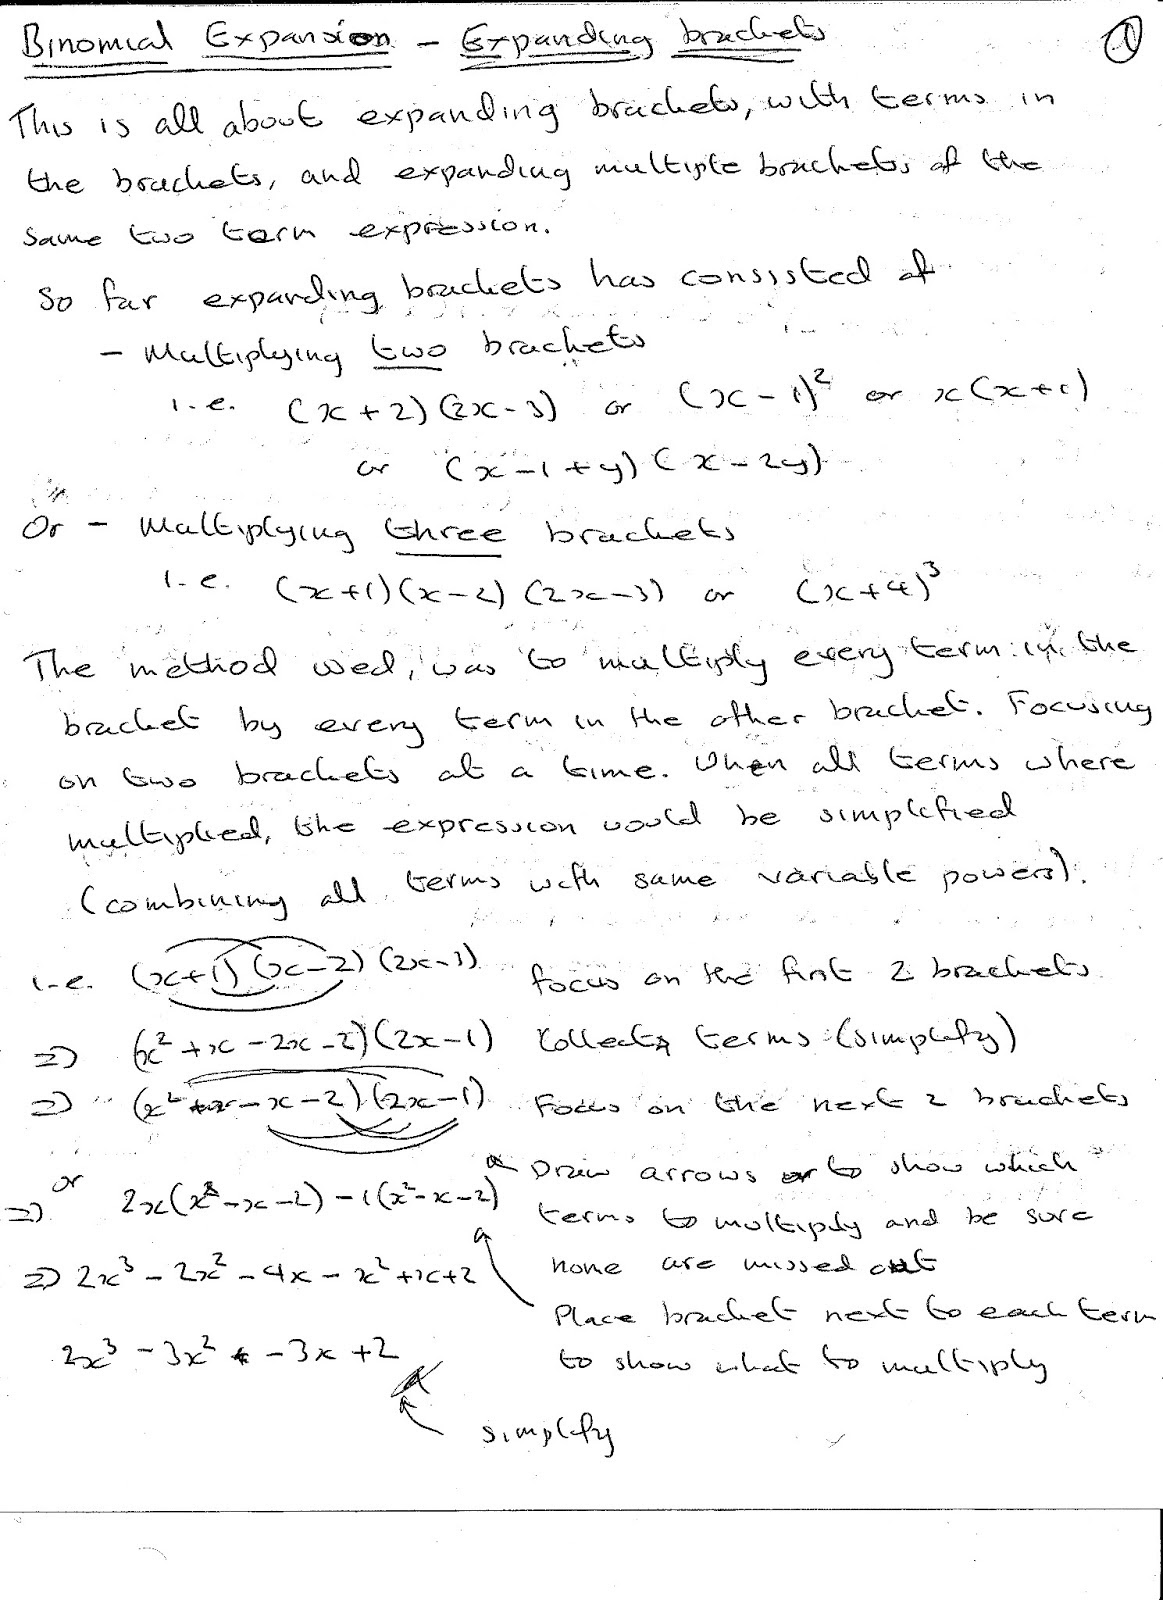 Binomial Expansion - Expanding brackets ①
This is all about expanding brackets, with terms in
the brackets, and expanding multiple brackets of the
same two term expression.
So far expanding brackets has consisted of
- Multiplying two brackets
i.e. (x+2)(2x-3) or (x-1)² or x(x+1)
or (x-1+y)(x-2y)
Or - Multiplying three brackets
i.e. (x+1)(x-2)(2x-3) or (x+4)³
The method used, was to multiply every term in the
bracket by every term in the other bracket. Focusing
on two brackets at a time. When all terms where
multiplied, the expression would be simplified
(combining all terms with same variable powers).
i.e. (x+1)(x-2)(2x-3) focus on the first 2 brackets
⇒ (x²+x-2x-2)(2x-1) Collect terms (simplify)
⇒ (x²-x-2)(2x-1) Focus on the next 2 brackets
Draw arrows to show which
or
⇒ 2x(x²-x-2)-1(x²-x-2) terms to multiply and be sure
none are missed out
⇒ 2x³-2x²-4x-x²+x+2
Place bracket next to each term
2x³-3x²-3x+2 to show what to multiply
simplify